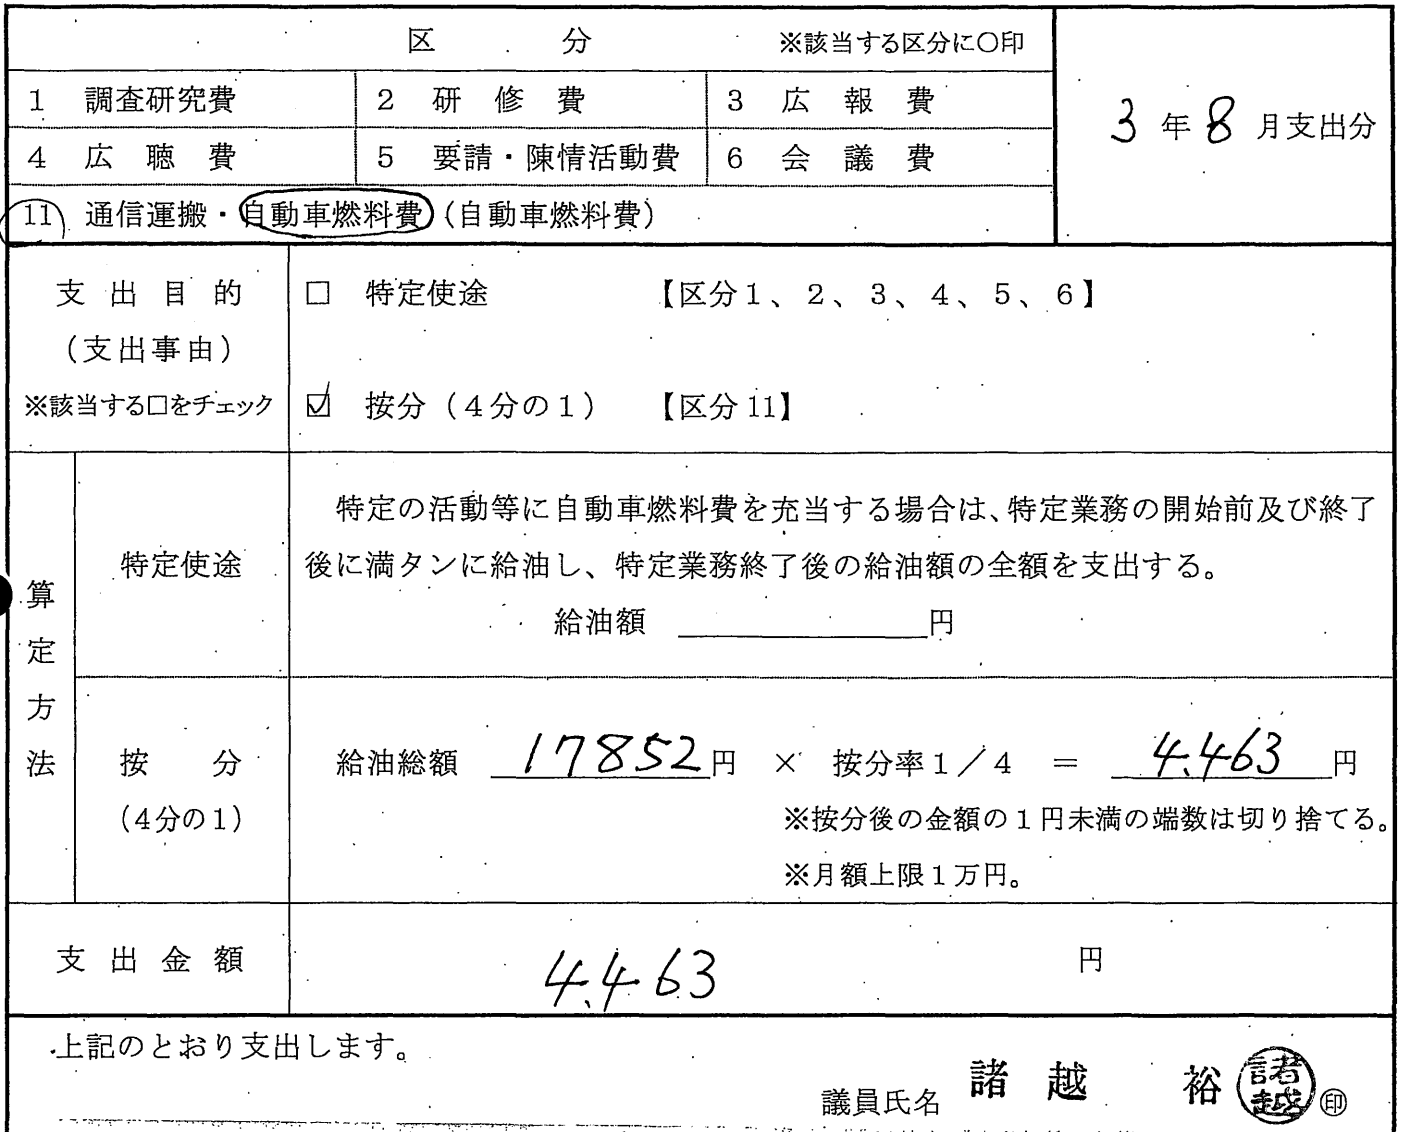 区　分　※該当する区分に○印
3年8月支出分
1　調査研究費　2　研修費　3　広報費
4　広聴費　5　要請・陳情活動費　6　会議費
11　通信運搬・自動車燃料費（自動車燃料費）
支出目的
（支出事由）
※該当する□をチェック
□　特定使途　【区分1、2、3、4、5、6】
☑　按分（4分の1）　【区分11】
算定方法
特定使途
特定の活動等に自動車燃料費を充当する場合は、特定業務の開始前及び終了
後に満タンに給油し、特定業務終了後の給油額の全額を支出する。
給油額　円
按分
（4分の1）
給油総額　17852円　×　按分率1／4　＝　4.463円
※按分後の金額の1円未満の端数は切り捨てる。
※月額上限1万円。
支出金額　4.463　円
上記のとおり支出します。
議員氏名　諸越　裕　諸越　㊞